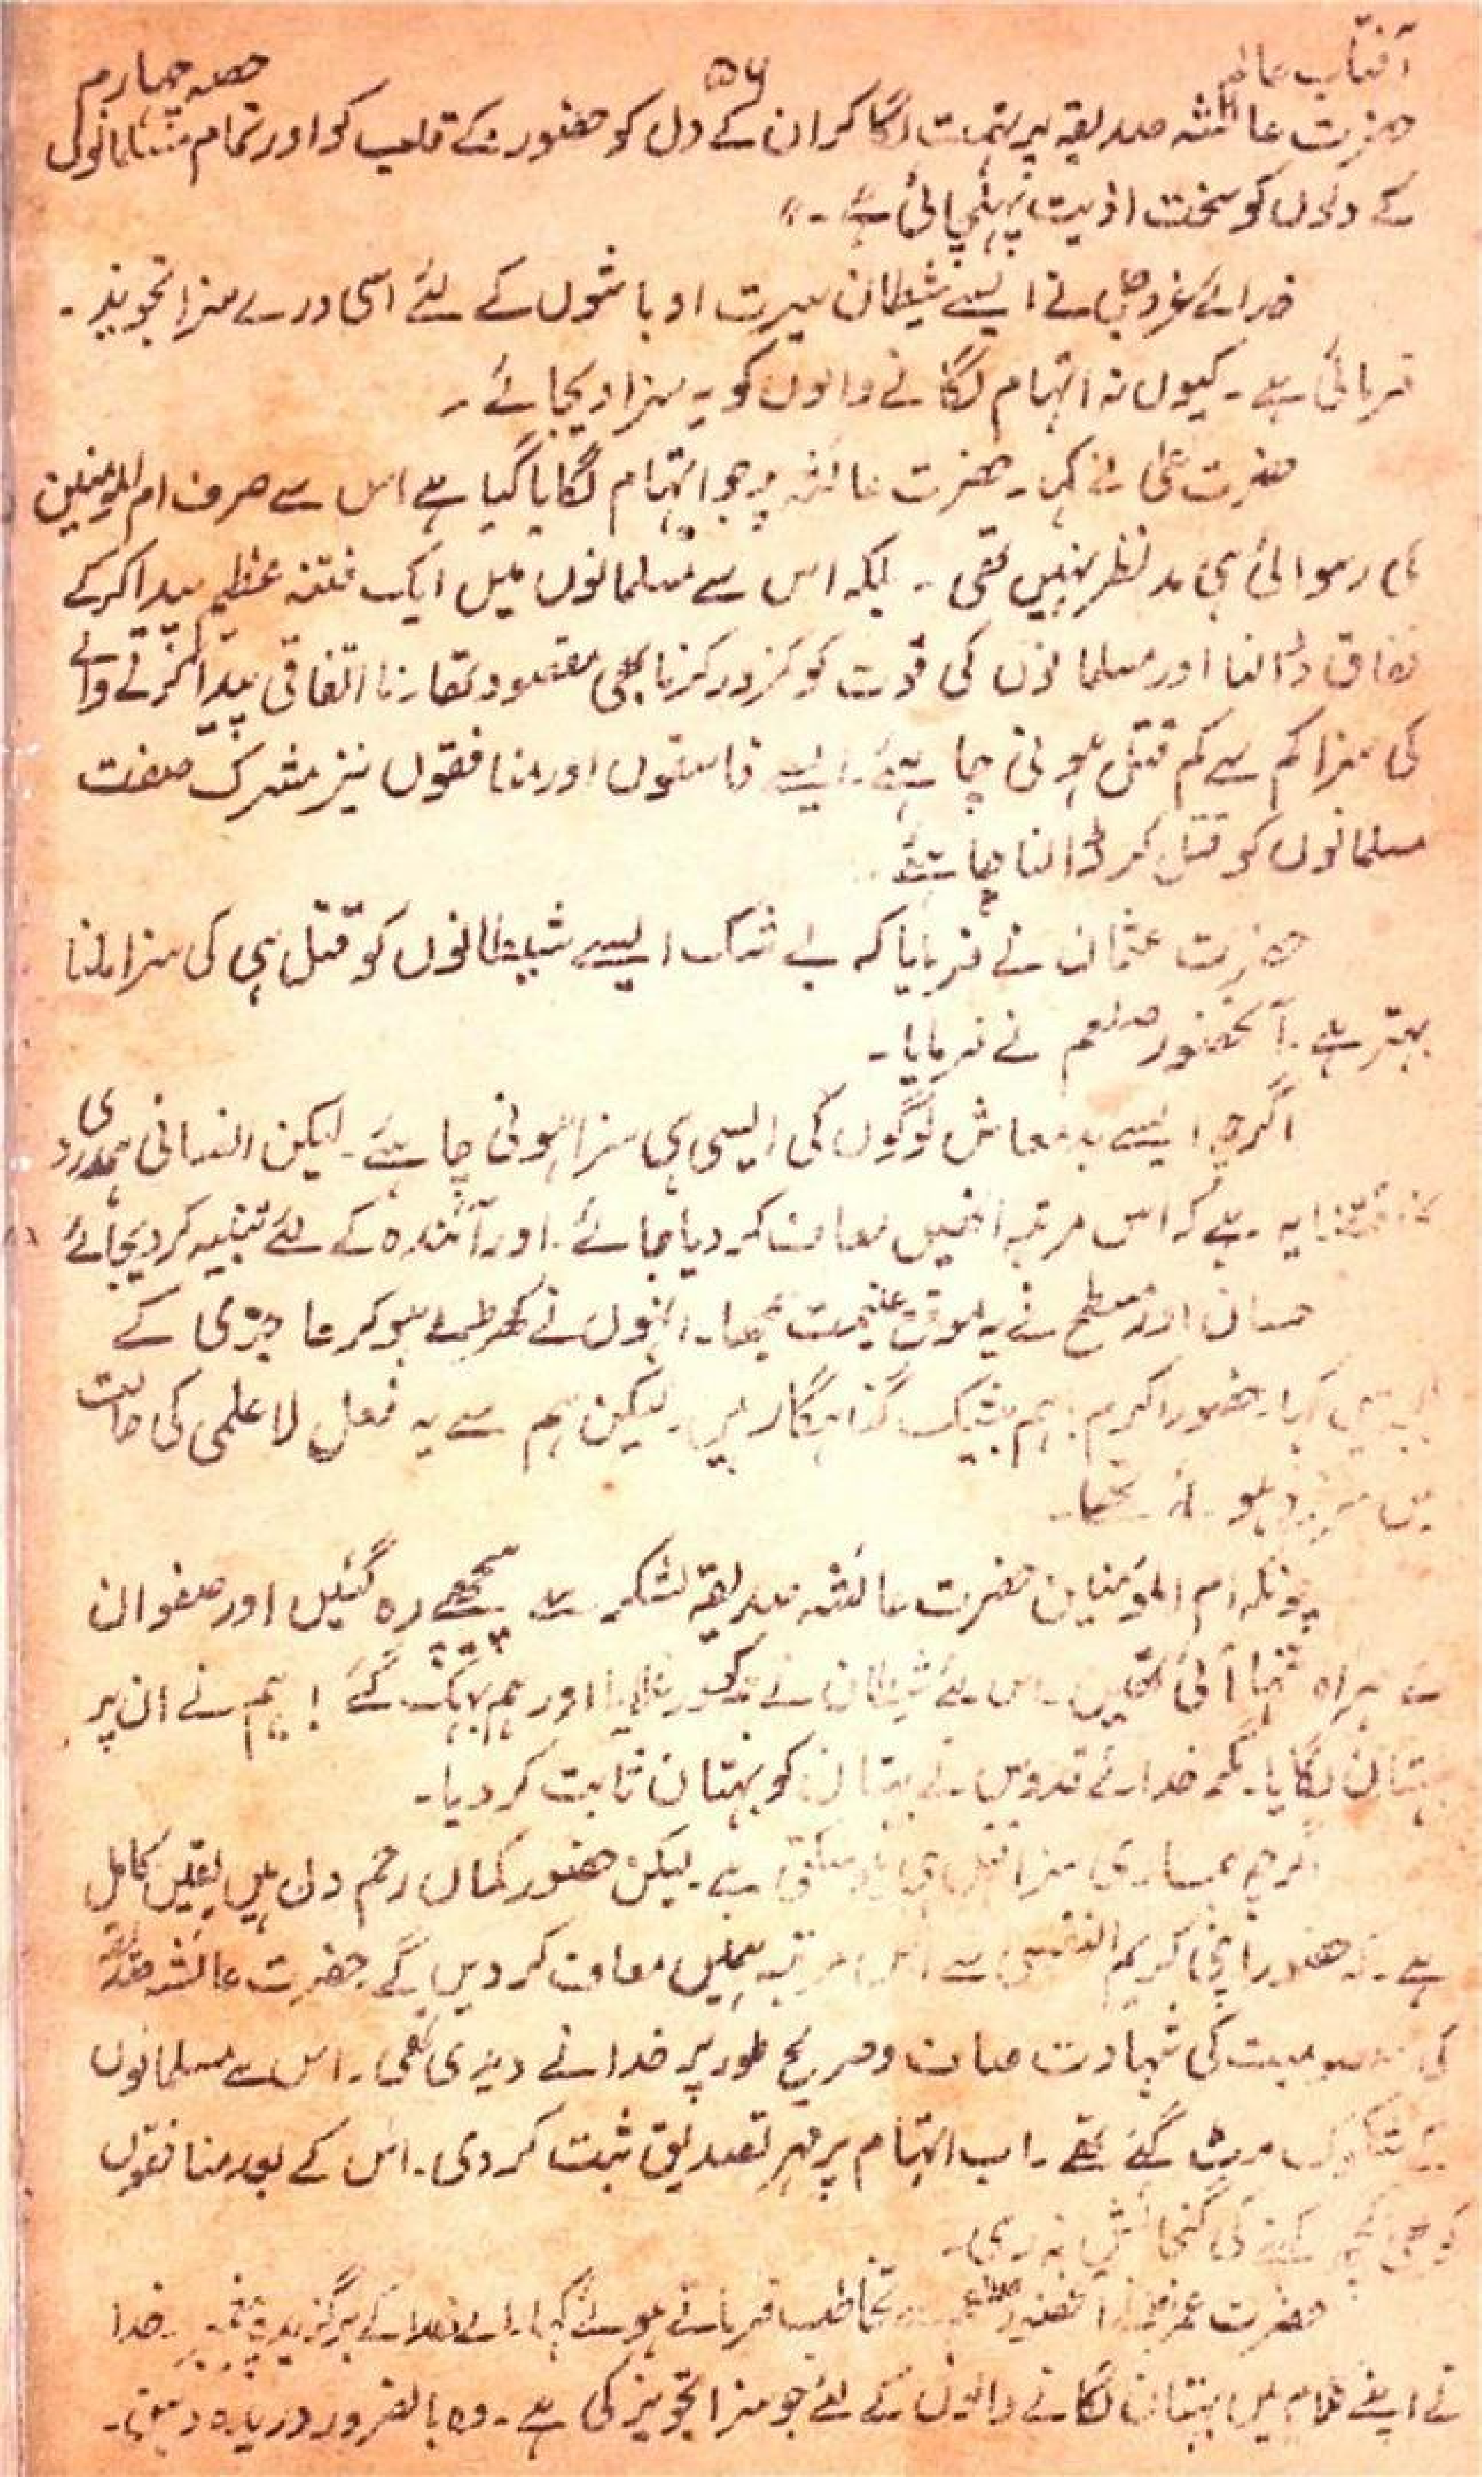 آفتاب عالم
۵۶
حصہ چہارم
حضرت عائشہ صدیقہ پر تہمت لگا کر ان کے دل کو حضور کے قلب کو اور تمام مسلمانوں
کے دلوں کو سخت اذیت پہنچائی ہے۔"
خدائے عزوجل نے ایسے شیطان سیرت اوباشوں کے لئے اسی درے سزا تجویز۔
فرمائی ہے۔ کیوں نہ اتہام لگانے والوں کو یہ سزا دیجائے۔
حضرت علی نے کہا۔ حضرت عائشہ پر جو اتہام لگایا گیا ہے اس سے صرف ام المومنین
کی رسوائی ہی مدنظر نہیں تھی۔ بلکہ اس سے مسلمانوں میں ایک فتنہ عظیم پیدا کر کے
نفاق ڈالنا اور مسلمانوں کی قوت کو کمزور کرنا بھی مقصود تھا۔ نا اتفاقی پیدا کرنے والے
کی سزا کم سے کم قتل ہونی چاہیئے۔ ایسے فاسقوں اور منافقوں نیز مشرک صفت
مسلمانوں کو قتل کر ڈالنا چاہیئے
حضرت عثمان نے فرمایا کہ بے شک ایسے شیطانوں کو قتل ہی کی سزا ملنا
بہتر ہے۔ آنحضور صلعم نے فرمایا۔
اگرچہ ایسے بدمعاش لوگوں کی ایسی ہی سزا ہونی چاہئے۔ لیکن انسانی ہمدردی
کا اقتضا یہ ہے کہ اس مرتبہ انھیں معاف کر دیا جائے۔ اور آئندہ کے لئے تنبیہ کر دیجائے
حسان اور مسطح نے یہ موقع غنیمت سمجھا۔ انہوں نے کھڑے ہو کر عاجزی کے
میں کہا۔ حضور اکرم! ہم بیشک گناہگار ہیں۔ لیکن ہم سے یہ فعل لا علمی کی حالت
میں سرزد ہو تھا۔
چونکہ ام المومنین حضرت عائشہ صدیقہ لشکر سے پیچھے رہ گئیں اور صفوان
کے ہمراہ تنہا آئی تھیں۔ اس لئے شیطان نے ہم کو ورغلایا اور ہم بہک گئے! ہم نے ان پر
بہتان لگایا۔ مگر خدائے قدوس نے بہتان کو بہتان ثابت کر دیا۔
اگرچہ ہماری سزا قتل ہی ہو سکتی ہے۔ لیکن حضور کمال رحم دل ہیں یقین کامل
ہے۔ کہ حضور اپنی کریم النفسی سے اس مرتبہ ہمیں معاف کر دیں گے۔ حضرت عائشہ صدیقہ
کی معصومیت کی شہادت صاف و صریح طور پر خدا نے دیدی تھی۔ اس سے مسلمانوں
کے شکوک مٹ گئے تھے۔ اب اتہام پر مہر تصدیق ثبت کر دی۔ اس کے بعد منافقوں
کو بھی کچھ کہنے کی گنجائش نہ رہی۔
حضرت عمر نے آنحضور صلعم سے مخاطب فرماتے ہوئے کہا۔ اے خدا کے برگزیدہ پیغمبر۔ خدا
نے اپنے کلام میں بہتان لگانے والوں کے لئے جو سزا تجویز کی ہے۔ وہ بالضرور